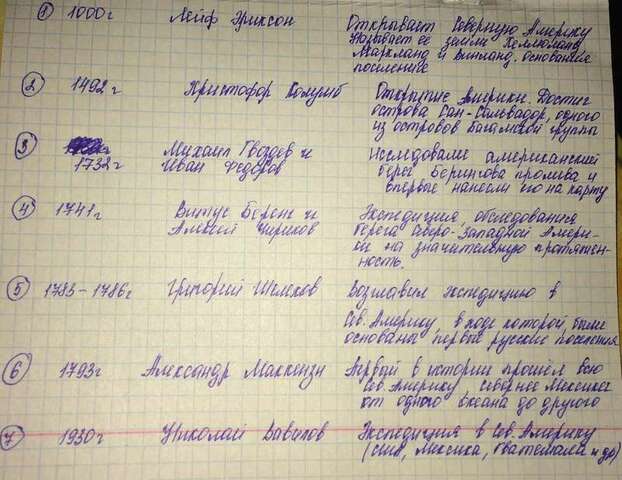 1 1000г Лейф Эриксон Открывает Северную Америку
Называет ее земли Хеллюланд
Маркланд и Винланд. Основание
поселение
2 1492г Христофор Колумб Открытие Америки. Достиг
острова Сан-Сальвадор, одного
из островов Багамской группы
3 1732г Михаил Гвоздев и Иван Федоров Исследовали американский
берег Берингова пролива и
впервые нанесли его на карту
4 1741г Витус Беринг и Алексей Чириков Экспедиция, обследования
берега Северо-Западной Амери-
ки на значительную протяжен-
ность.
5 1783-1786г Григорий Шелехов Возглавил экспедицию в
Сев. Америку, в ходе которой были
основаны первые русские поселения
6 1793г Александр Маккензи Первый в истории прошёл всю
Сев Америку севернее Мексики
от одного океана до другого
7 1930г Николай Вавилов Экспедиция в Сев. Америку
(сша, Мексика, Гватемала и др)